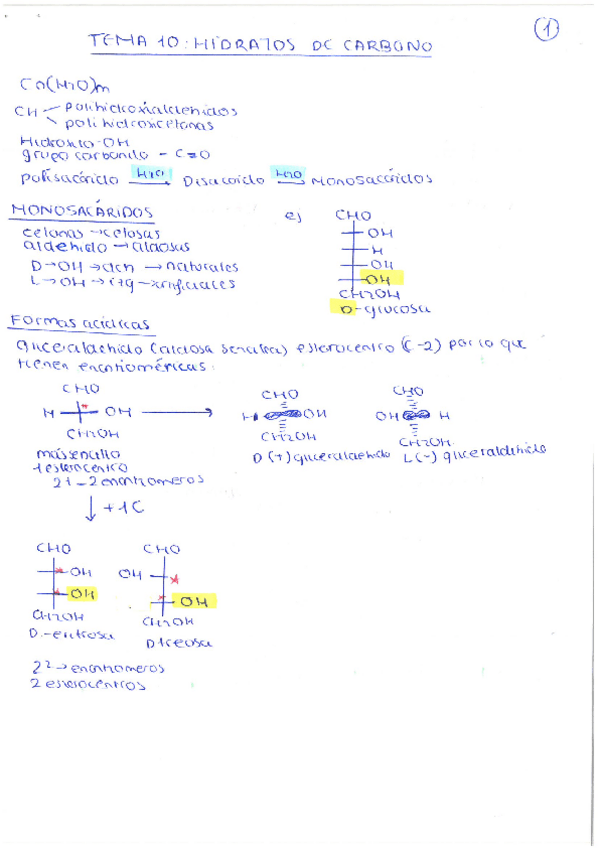 1
TEMA 10: HIDRATOS DE CARBONO
Cn(H2O)m
CH polihidroxialdehidos
polihidroxicetonas
Hidroxilo-OH
grupo carbonilo - C=O
polisacárido H2O Disacárido H2O Monosacáridos
MONOSACÁRIDOS
cetonas → cetosas
aldehido → aldosas
D → OH → dch → naturales
L → OH → izq - artificiales
ej CHO
OH
H
OH
OH
CH2OH
D-glucosa
Formas acíclicas
gliceraldehido (aldosa sencilla) esterocentro (C-2) por lo que
tienen enantioméricas:
CHO
H OH
CH2OH
más sencillo
1 esterocentro
2^1 - 2 enantiomeros
CHO
H OH
CH2OH
D (+) gliceraldehido
CHO
OH H
CH2OH
L(-) gliceraldehido
↓ +1C
CHO
OH
OH
CH2OH
D-eritrosa
CHO
OH
OH
CH2OH
D treosa
2^2 → enantiomeros
2 esterocentros